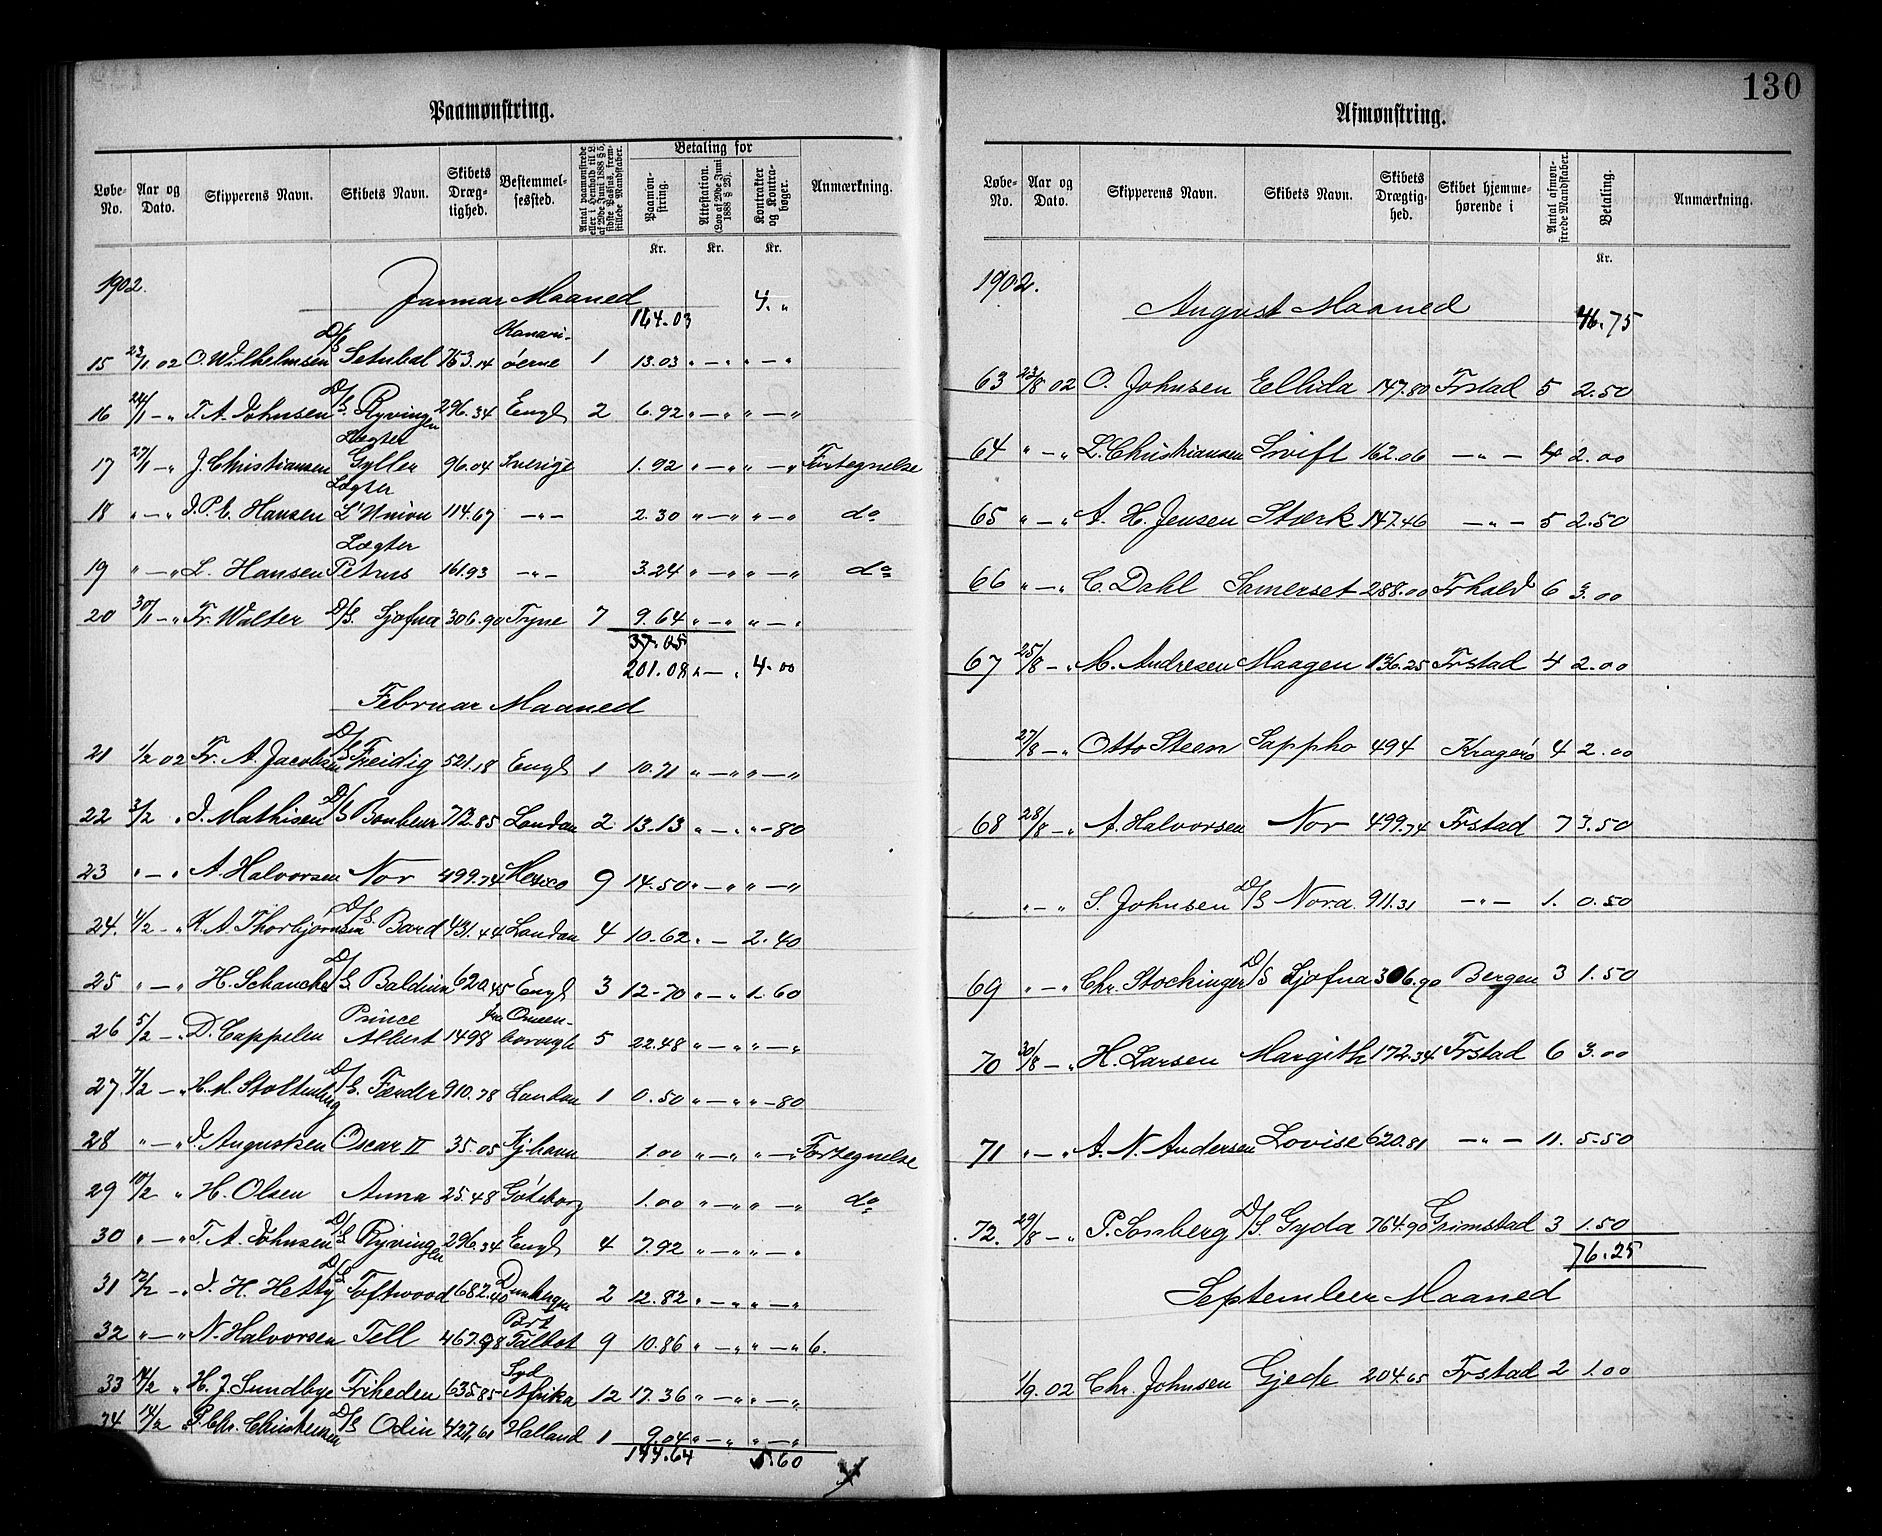 130
Paamønstring.
Løbe-No. Aar og Dato. Skipperens Navn. Skibets Navn. Skibets Dræg-tighed. Bestemmel-sessted. Betaling for Paamøn-string. Attestation. (Lov af 29de Juni 1888 § 23). Kontrakter og Kontra-bøger. Anmærkning.
Kr. Kr. Kr.
1902. Januar Maaned 164.03 4. „
15 23/1 02 O. Wilhelmsen D/S Setubal 753.14 Kanari-øerne 1 13.03 „ — „ „ — „
16 24/1 — „ T. A. Johnsen D/S. Ryvingen 296.34 Engl 2 6.92 „ — „ „ — „
17 27/1 — „ J. Christiansen Lægter Gyller 96.04 Sverige 1.92 „ — „ „ — „ Fortegnelse
18 „ — „ J. P. C. Hansen Lægter L'Union 114.67 — „ — 2.30 „ — „ „ — „ do
19 „ — „ L. Hansen Lægter Petrus 161.93 — „ — 3.24 „ — „ „ — „ do
20 30/1 — „ Fr. Walter D/S. Sjofna 306.90 Tyne 7 9.64 „ — „ „ — „
37.05
201.08 „ — „ 4.00
Februar Maaned
21 1/2 02 Fr. A. Jacobsen D/S Freidig 521.18 Engl 1 10.71 „ — „ „ — „
22 3/2 „ J. Mathisen D/S Bonheur 712.85 London 2 13.13 „ — „ „ — 80
23 „ — „ A. Halvorsen Nor 499.74 Mexico 9 14.50 „ — „ „ — „
24. 4/2 — „ K. A. Thorbjørnsen D/S. Bard 431.44 London 4 10.62 „ — 2.40
25 „ — „ H. Schanche D/S. Baldur 620.45 Engl 3 12.70 „ — „ 1.60
26 5/2 — „ D. Cappelen Prince Albert 1498 5 22.48 „ — „ „ — „
27. 7/2 — „ H. M. Stoltenberg D/S. Færder 910.78 London 1 0.50 „ — „ „ — 80
28 „ — „ J. Augustsen Oscar II 35.05 Kj.havn 1.00 „ — „ „ — „ Fortegnelse
29 10/2 „ H. Olsen Anna 25.48 Göteborg 1.00 „ — „ „ — „ do
30 „ — „ T. A. Johnsen D/S. Ryvingen 296.34 Engl 4 7.92 „ — „ „ — „
31 12/2 — „ J. H. Hetty D/S. Toftwood 682.40 2 12.82 „ — „ „ — „
32 „ — „ N. Halvorsen Tell 467.98 Port Talbot 9 10.86 „ — „ „ — „ 6.
33 14/2 „ H. J. Sundbye Friheden 635.85 Syd Afrika 12 17.36 „ — „ „ — „
34 14/2 P. Chr. Christensen D/S Odin 427.61 Holland 1 9.04 „ — „ „ — „
144.64 5.60
Afmønstring.
Løbe-No. Aar og Dato. Skipperens Navn. Skibets Navn. Skibets Drægtig-hed. Skibet hjemme-hørende i Antal afmøn-strede Mandskaber. Betaling. Anmærkning.
Kr.
1902. August Maaned 46.75
63 23/8 02 O. Johnsen Ellida 147.80 Frstad 5 2.50
64 „ — „ L. Christiansen Swift 162.06 — „ — 4 2.00
65 „ — „ A. H. Jensen Stærk 147.46 — „ — 5 2.50
66 „ — „ C. Dahl Somerset 288.00 Frhald 6 3.00
67 25/8 — „ M. Andresen Maagen 136.25 Frstad 4 2.00
27/8 — „ Otto Steen Sappho 494 Kragerö 4 2.00
68 28/8 — „ A. Halvorsen Nor 499.74 Frstad 7 3.50
„ — „ S. Johnsen D/S Nora. 911.31 — „ — 1. 0.50
69 „ — „ Chr. Stockinger D/S Sjofna 306.90 Bergen 3 1.50
70 30/8 — „ H. Larsen Margith 172.34 Frstad 6 3.00
71 „ — „ A. N. Andersen Lovise 620.81 — „ — 11. 5.50
72. 29/8 — „ P. Somberg D/S. Gyda 764.90 Grimstad 3 1.50
76.25
September Maaned
1/9. 02 Chr. Johnsen Gjede 204.65 Frstad 2 1.00